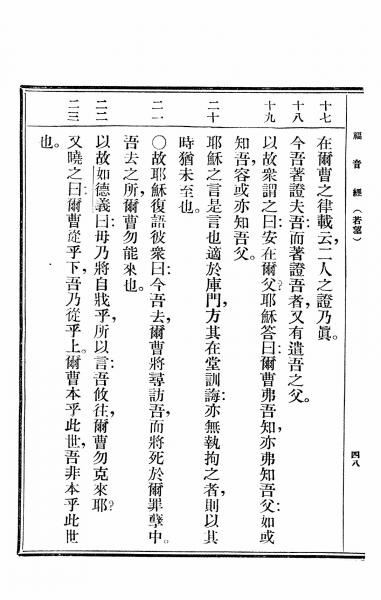 福音經（若望）
四八
十七
在爾曹之律載云二人之證乃眞。
十八
今吾著證夫吾而著證吾者，又有遣吾之父。
十九
以故衆謂之曰安在爾父？耶穌答曰：爾曹弗吾知，亦弗知吾父：如或
知吾，容或亦知吾父。
二十
耶穌之言是言也適於庫門，方其在堂訓誨：亦無執拘之者，則以其
時猶未至也。
二一
〇故耶穌復語彼衆曰：今吾去，爾曹將尋訪吾，而將死於爾罪孽中。
吾去之所，爾曹勿能來也。
二二
以故如德義曰：毋乃將自戕乎，所以言：吾攸往，爾曹勿克來耶？
二三
又曉之曰：爾曹從乎下，吾乃從乎上。爾曹本乎此世，吾非本乎此世
也。